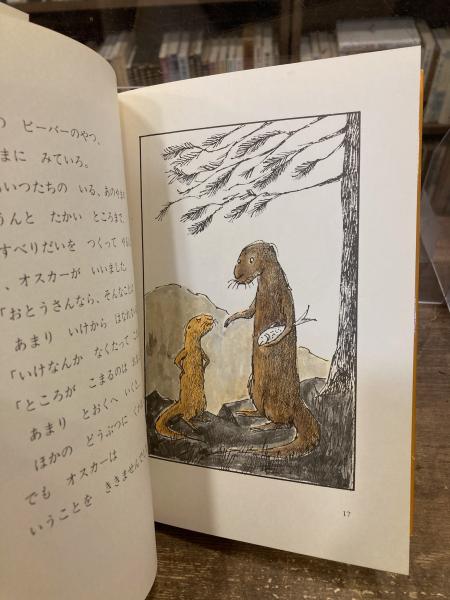 ビーバーのやつ、
まに みていろ。
いつたちの いる、あの
うんと たかい ところまで、
すべりだいを つくって
、オスカーが いいました
「おとうさんなら、そんなこと
あまり いけから はなれ
「いけなんか なくたって
「ところが こまるのは
あまり とおくへ いくと
ほかの どうぶつに
でも オスカーは
いうことを ききませんでし
17